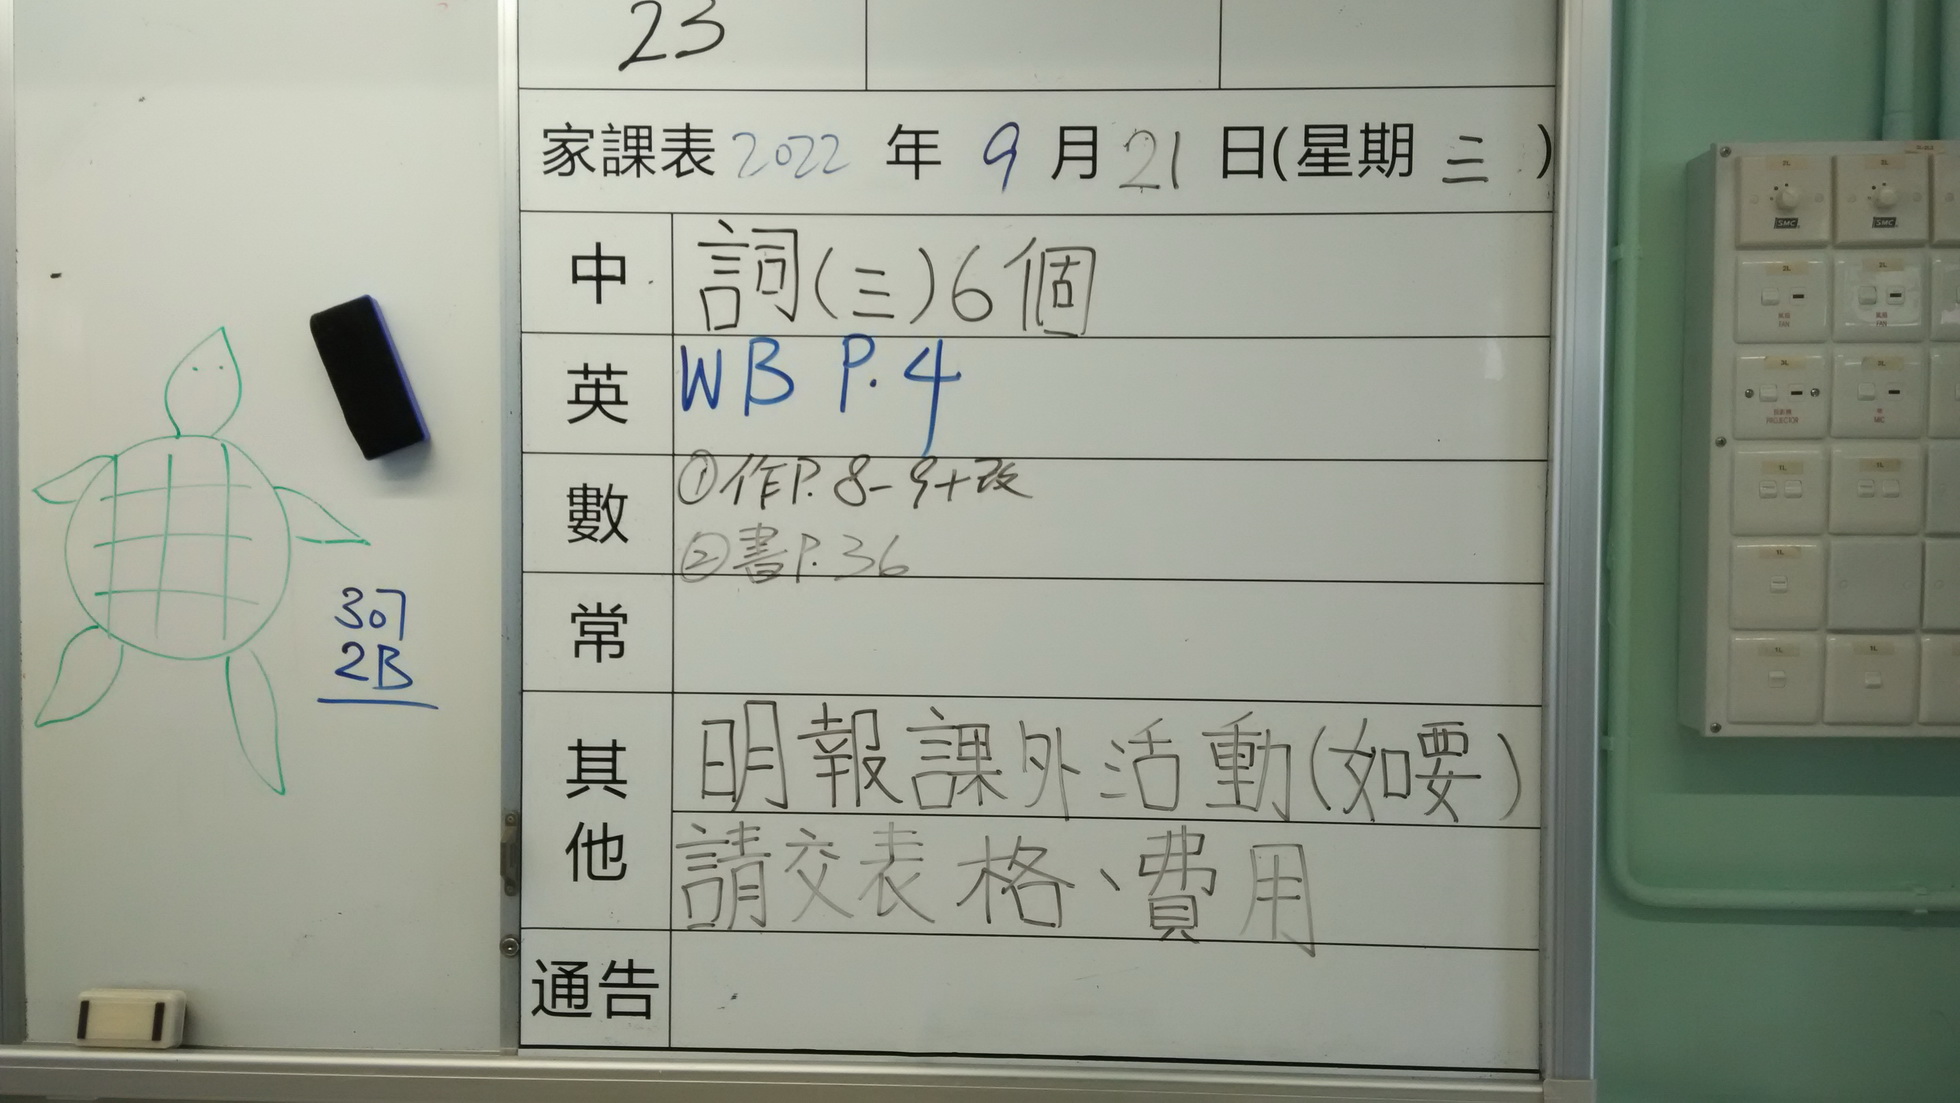 23
家課表 2022 年 9 月 21 日(星期 三 )
中 詞(三)6個
英 WB P.4
數 ①作P.8-9+改
②書P.36
常
其他 明報課外活動(如要)
請交表格、費用
通告
307
2B
SMC SMC
FAN FAN
PROJECTOR MIC